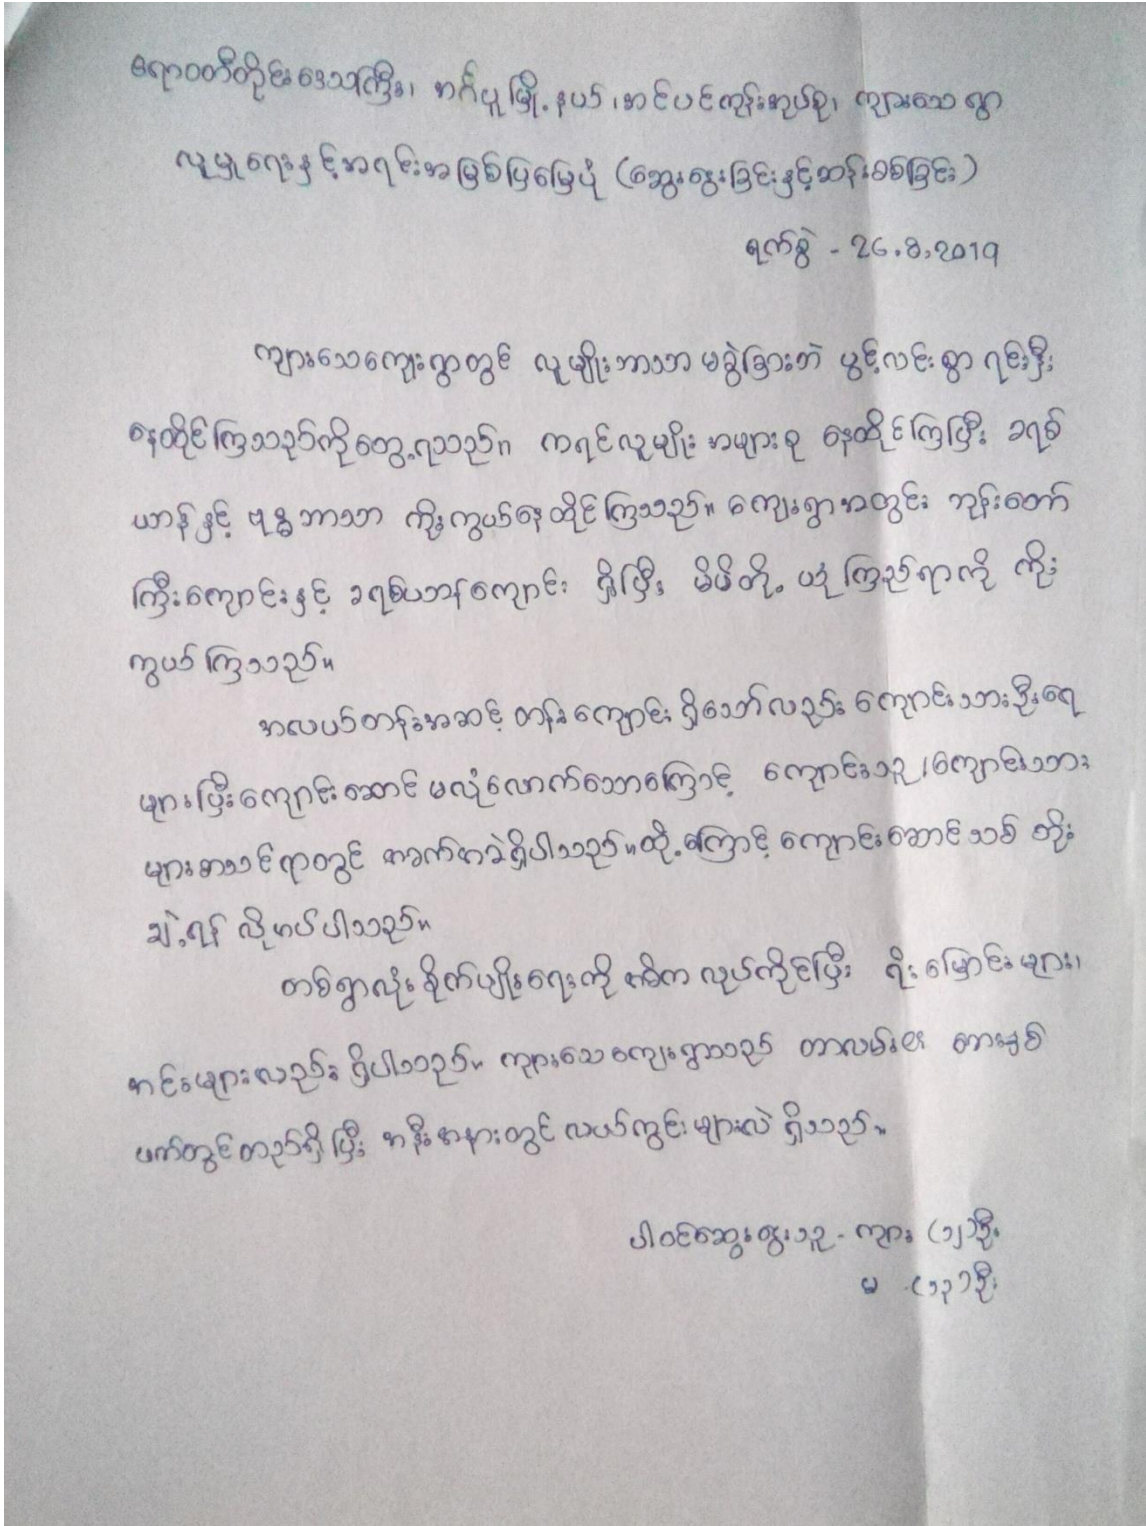 ဧရာဝတီတိုင်းဒေသကြီး၊ အင်္ဂပူမြို့နယ်၊ အင်ပင်ကုန်းအုပ်စု၊ ကျားသေရွာ
လူမှုရေးနှင့်အရင်းအမြစ်ပြမြေပုံ (ဆွေးနွေးခြင်းနှင့်ဆန်းစစ်ခြင်း)
ရက်စွဲ - 26.8.2019
ကျားသေကျေးရွာတွင် လူမျိုးဘာသာ မခွဲခြားဘဲ ပွင့်လင်းစွာ ရင်းနှီး
နေထိုင်ကြသည်ကိုတွေ့ရသည်။ ကရင်လူမျိုး အများစု နေထိုင်ကြပြီး ခရစ်
ယာန်နှင့် ဗုဒ္ဓဘာသာ ကိုးကွယ်နေထိုင်ကြသည်။ ကျေးရွာအတွင်း ဘုန်းတော်
ကြီးကျောင်းနှင့် ခရစ်ယာန်ကျောင်း ရှိပြီး မိမိတို့ ယုံကြည်ရာကို ကိုး
ကွယ်ကြသည်။
အလယ်တန်းအဆင့် တန်းကျောင်း ရှိသော်လည်း ကျောင်းသားဦးရေ
များပြီးကျောင်းဆောင် မလုံလောက်သောကြောင့် ကျောင်းသူ၊ကျောင်းသား
များစာသင်ရာတွင် အခက်အခဲရှိပါသည်။ထို့ကြောင့် ကျောင်းဆောင်သစ် တိုး
ချဲ့ရန် လိုအပ်ပါသည်။
တစ်ရွာလုံး စိုက်ပျိုးရေးကို အဓိက လုပ်ကိုင်ပြီး ရိုးမြောင်းများ၊
အင်းများလည်း ရှိပါသည်။ ကျားသေကျေးရွာသည် တာလမ်း၏ တာနှစ်
ဖက်တွင်တည်ရှိပြီး အနီးအနားတွင် လယ်ကွင်းများလဲ ရှိသည်။
ပါဝင်ဆွေးနွေးသူ - ကျား (၁၂)ဦး
မ - (၁၃)ဦး